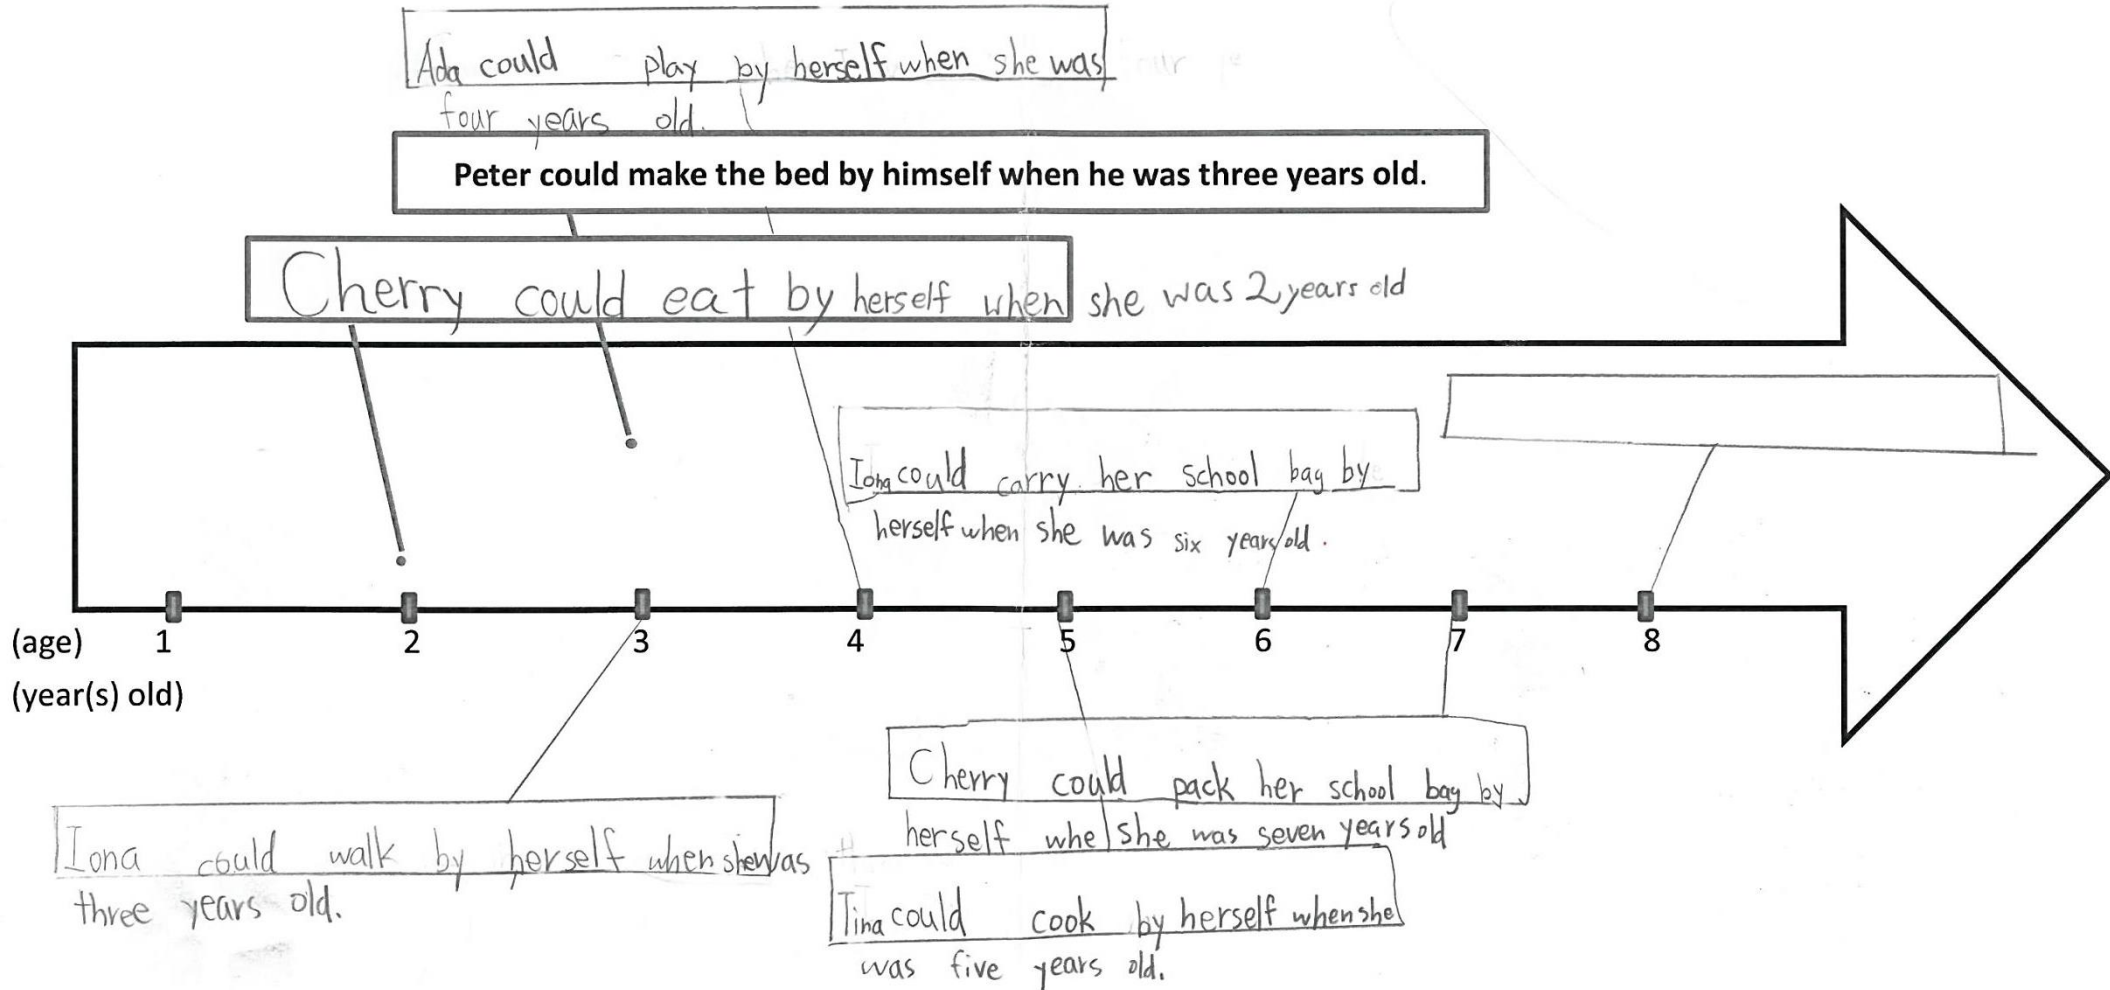 Ada could play by herself when she was
four years old.
Peter could make the bed by himself when he was three years old.
Cherry could eat by herself when she was 2 years old
Iona could carry her school bag by
herself when she was six years old.
(age) 1 2 3 4 5 6 7 8
(year(s) old)
Cherry could pack her school bag by
herself whe she was seven years old
Iona could walk by herself when she was
three years old.
Tina could cook by herself when she
was five years old.